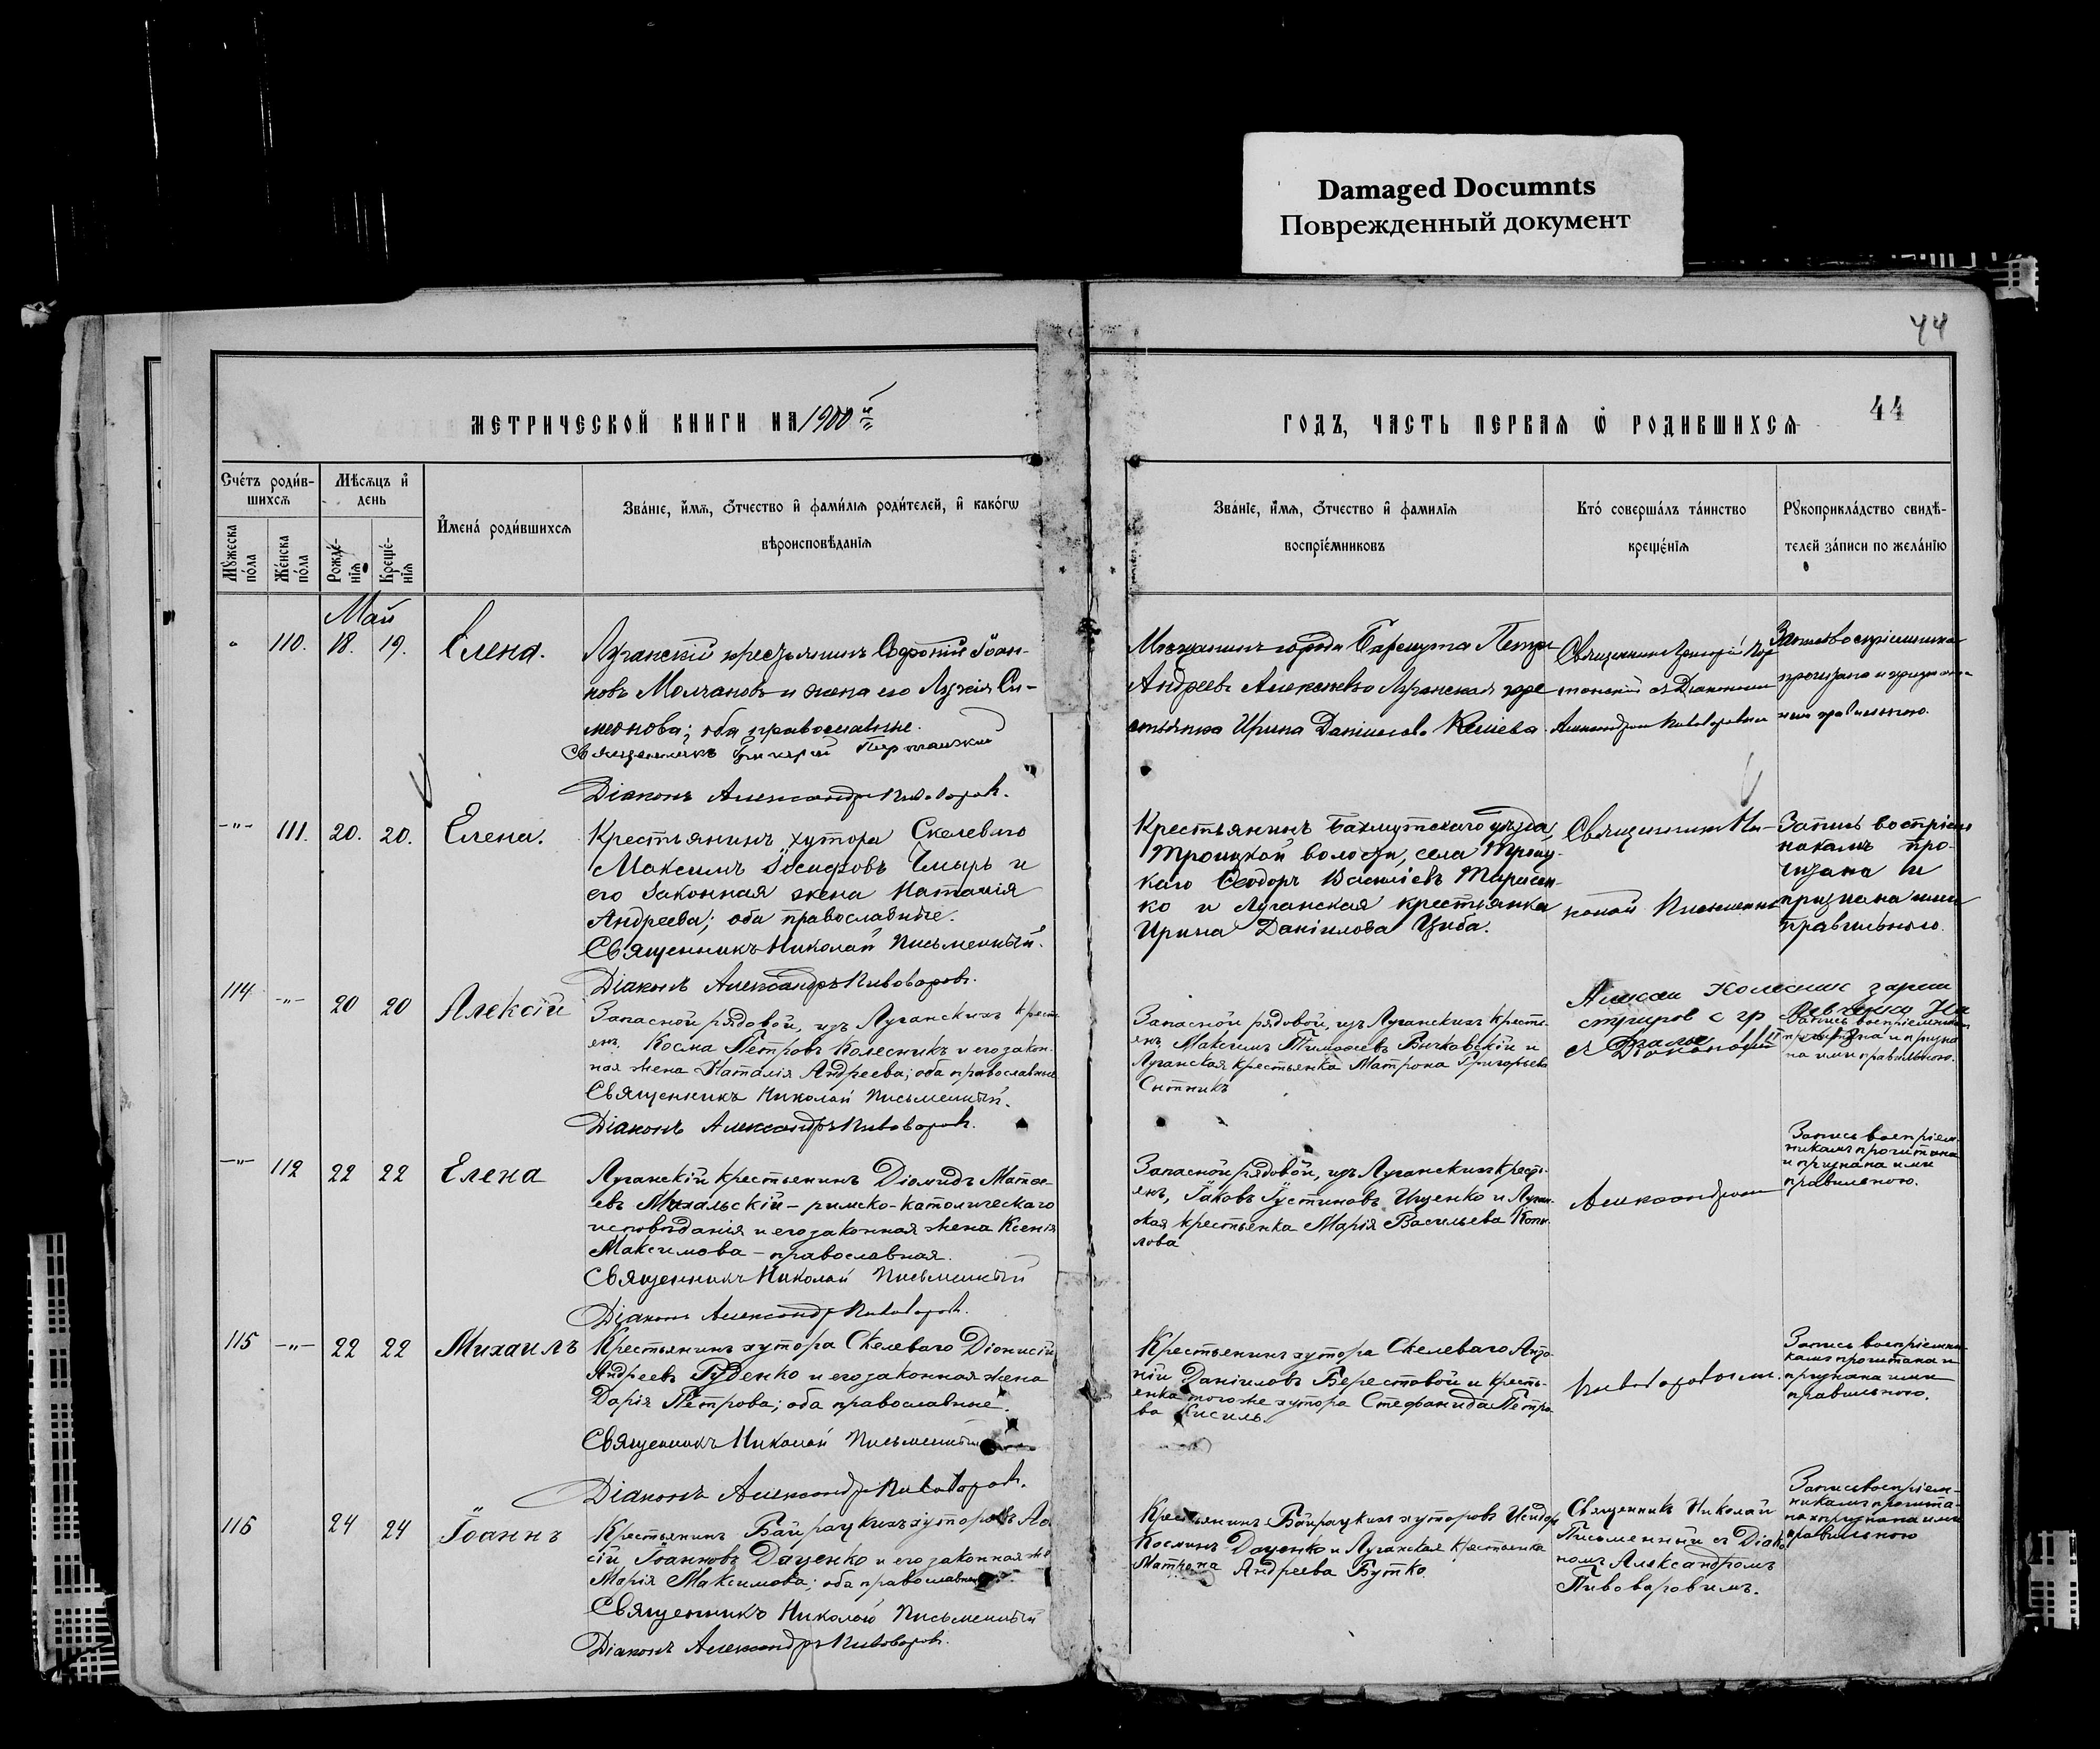 Damaged Documnts
Поврежденный документ
44
МЕТРИЧЕСКОЙ КНИГИ НА 1900 й
ГОДЪ, ЧАСТЬ ПЕРВАЯ Ѡ РОДИВШИХСЯ
44
Счетъ родив-
шихся
Мѣсяцъ и
день
Имена родившихся
Званіе, имя, отчество и фамилія родителей, и какогѡ
вѣроисповѣданія
Мужеска
пола
Женска
пола
Рожде-
нія
Креще-
нія
Званіе, имя, отчество и фамилія
воспріемниковъ
Кто совершалъ таинство
крещенія
Рукоприкладство свидѣ-
телей записи по желанію
Май
110. 18. 19. Елена.
Луганскій крестьянинъ Софроній Іоан-
новъ Молчановъ и жена его Лукія Си-
меонова; оба православные.
Священникъ Григорій
Діаконъ Александръ Пивоваровъ.
Мѣщанинъ города Петръ
Андреевъ Алексѣевъ Луганская кре
стьянка Ирина Даніилова
Священникъ Григорій
съ Діакономъ
Александромъ Пивоваровымъ
прочитана и признана
ими правильною.
-"- 111. 20. 20. Елена.
Крестьянинъ хутора Скелеваго
Максимъ Іосифовъ Чмырь и
его законная жена Наталія
Андреева; оба православные.
Священникъ Николай Письменный.
Діаконъ Александръ Пивоваровъ.
Крестьянинъ Бахмутскаго уѣзда,
Троицкой волости, села Троиц-
каго Ѳеодоръ Василіевъ Тарасен-
ко и Луганская крестьянка
Ирина Даніилова Цыба.
Священникъ Ни-
колай Письменный
Запись воспріем
никамъ про-
читана и
признана ими
правильною.
114 -"- 20 20 Алексій
Запасной рядовой, изъ Луганскихъ крест
янъ, Косма Петровъ Колесникъ и его закон-
ная жена Наталія Андреева; оба православные
Священникъ Николай Письменный.
Діаконъ Александръ Пивоваровъ.
Запасной рядовой, изъ Луганскихъ кресть-
янъ, Максимъ Тимоѳеевъ Бычковскій и
Луганская крестьянка Матрона Григорьева
Сытникъ
Алексей Колесник зареги
стриров с гр
съ Діакономъ
Запись воспріемникам
прочитана и призна
на ими правильною.
-"- 112 22 22 Елена
Луганскій крестьянинъ Діомидъ Матѳе-
евъ Михальскій - римско-католическаго
исповѣданія и его законная жена Ксенія
Максимова - православная.
Священникъ Николай Письменный
Діаконъ Александръ Пивоваровъ.
Запасной рядовой, изъ Луганскихъ кресть-
янъ, Іаковъ Іустиновъ Ищенко и Луган-
ская крестьянка Марія Васильева Копы-
лова
Александромъ
Запись воспріем-
никамъ прочитана
и признана ими
правильною.
115 -"- 22 22 Михаилъ
Крестьянинъ хутора Скелеваго Діонисій
Андреевъ Руденко и его законная жена
Дарія Петрова; оба православные.
Священникъ Николай Письменный
Діаконъ Александръ Пивоваровъ.
Крестьянинъ хутора Скелеваго Анто-
ній Даніиловъ Берестовой и кресть-
янка того же хутора Стефанида Петро-
ва Кисиль.
Пивоваровымъ.
Запись воспріемни-
камъ прочитана и
признана ими
правильною.
116 24 24 Іоаннъ
Крестьянинъ Байрацкихъ хуторовъ
сій Іоанновъ Даценко и его законная же
Марія Максимова; оба православные.
Священникъ Николай Письменный
Діаконъ Александръ Пивоваровъ.
Крестьянинъ Байрацкихъ хуторовъ Исидоръ
Косминъ Даценко и Луганская крестьянка
Матрона Андреева Бутко.
Священникъ Николай
Письменный съ Діако
номъ Александромъ
Пивоваровымъ.
Запись воспріем-
никамъ прочита-
на и признана ими
правильною